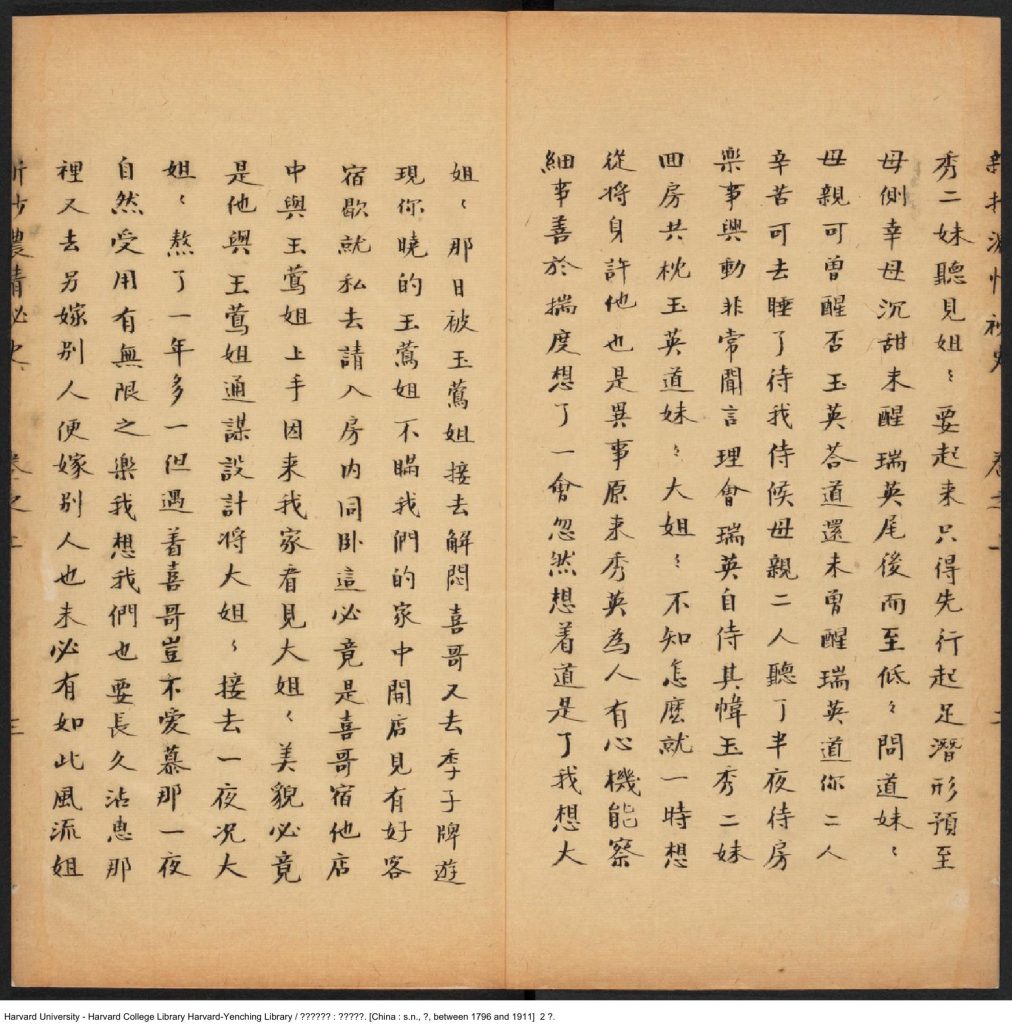 卷之一 二
秀二妹聽見姐〻要起来只得先行起足潛形預至
母側幸母沉甜未醒瑞英尾後而至低〻問道妹〻
母親可曾醒否玉英荅道還未曾醒瑞英道你二人
辛苦可去睡了待我侍候母親二人聽了半夜侍房
樂事興動非常聞言理會瑞英自侍其幃玉秀二妹
囬房共枕玉英道妹〻大姐〻不知怎麼就一時想
從將身許他也是異事原来秀英為人有心機能察
細事善於揣度想了一會忽然想着道是了我想大
姐〻那日被玉鶯姐接去解悶喜哥又去季子牌遊
現你曉的玉鶯姐不瞞我們的家中開店見有好客
宿歇就私去請入房内同卧這必竟是喜哥宿他店
中與玉鶯姐上手因来我家看見大姐〻美貌必竟
是他與玉鶯姐通謀設計将大姐〻接去一夜况大
姐〻熬了一年多一但遇着喜哥豈不愛慕那一夜
自然受用有無限之樂我想我們也要長久沾惠那
裡又去另嫁别人便嫁别人也未必有如此風流姐
濃情必史 卷之一 三
Harvard University - Harvard College Library Harvard-Yenching Library / ?????? : ?????. [China : s.n., ?, between 1796 and 1911] 2 ?.